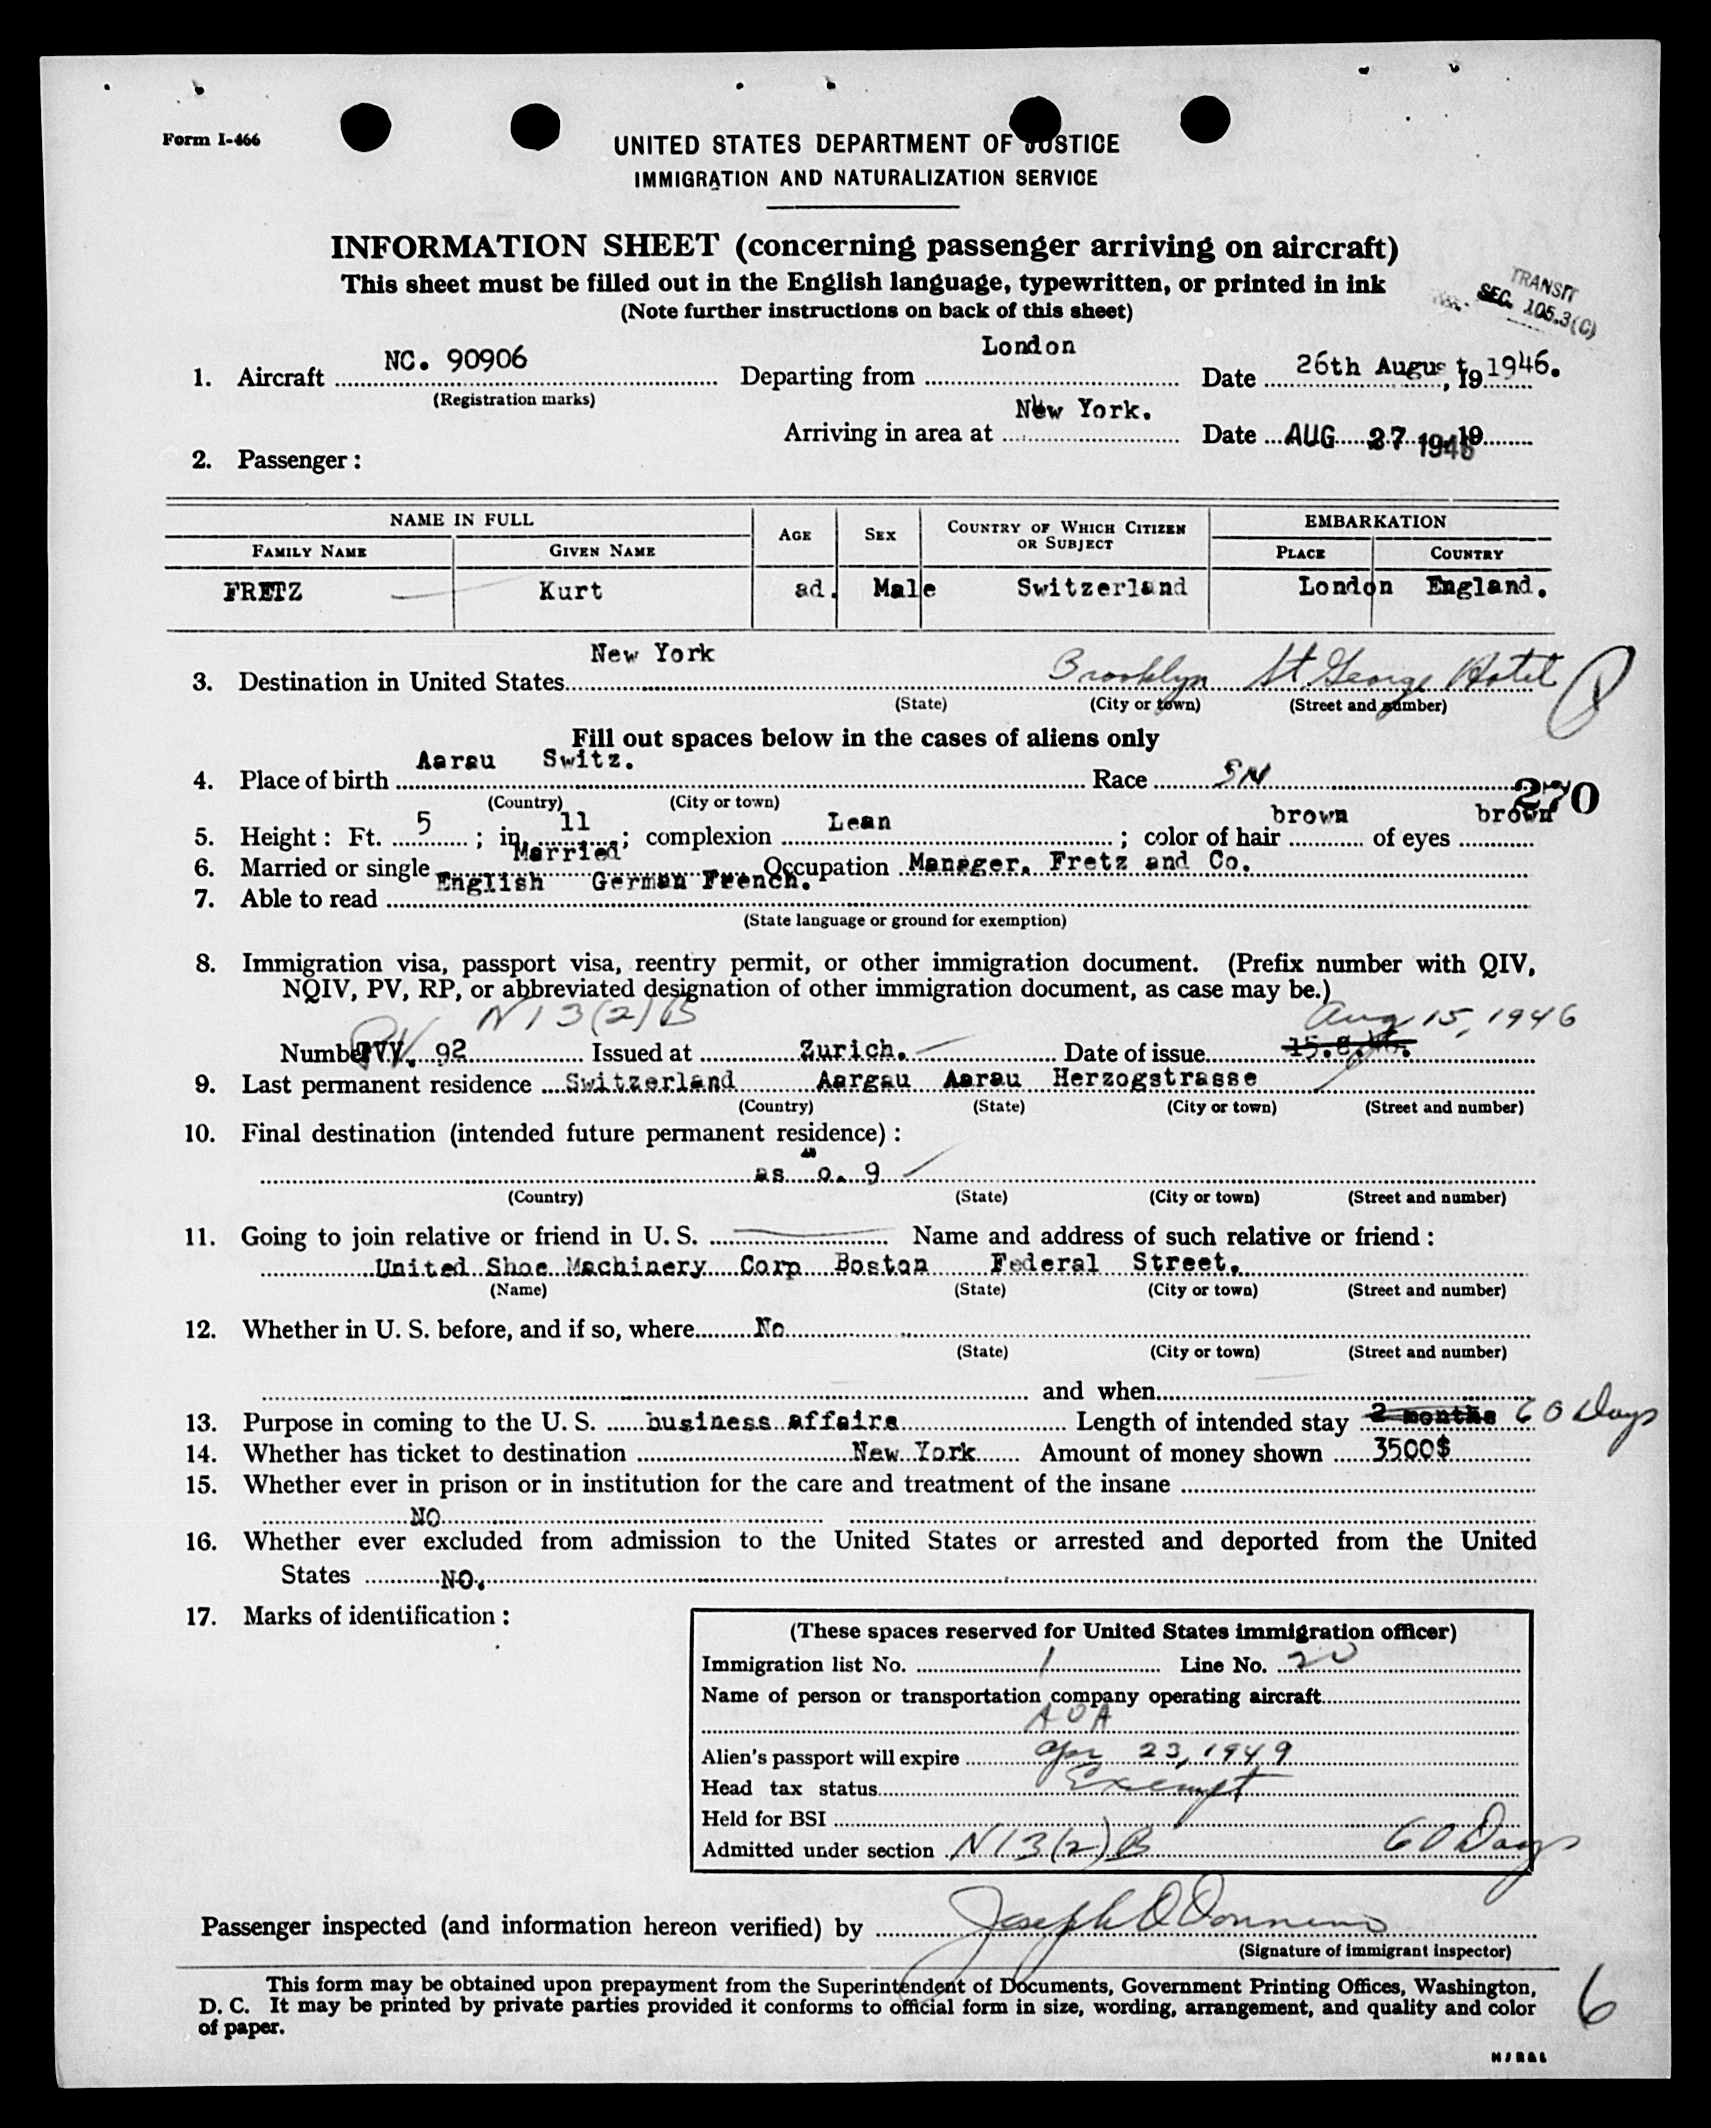 Form I-466
UNITED STATES DEPARTMENT OF JUSTICE
IMMIGRATION AND NATURALIZATION SERVICE
INFORMATION SHEET (concerning passenger arriving on aircraft)
This sheet must be filled out in the English language, typewritten, or printed in ink
(Note further instructions on back of this sheet)
TRANSIT
SEC. 105.3(C)
1. Aircraft NC. 90906 Departing from London Date 26th August, 19 1946.
(Registration marks)
Arriving in area at New York. Date AUG 27 1946 19
2. Passenger:
NAME IN FULL AGE SEX COUNTRY OF WHICH CITIZEN OR SUBJECT EMBARKATION
FAMILY NAME GIVEN NAME PLACE COUNTRY
FRETZ Kurt ad. Male Switzerland London England.
3. Destination in United States New York Brooklyn St. George Hotel
(State) (City or town) (Street and number)
Fill out spaces below in the cases of aliens only
4. Place of birth Aarau Switz. Race SN
(Country) (City or town)
270
5. Height: Ft. 5; in. 11; complexion Lean; color of hair brown of eyes brown
6. Married or single Married Occupation Manager, Fretz and Co.
7. Able to read English German French.
(State language or ground for exemption)
8. Immigration visa, passport visa, reentry permit, or other immigration document. (Prefix number with QIV,
NQIV, PV, RP, or abbreviated designation of other immigration document, as case may be.)
N13(2)B Aug 15, 1946
Number PV 92 Issued at Zurich. Date of issue 15.8.46.
9. Last permanent residence Switzerland Aargau Aarau Herzogstrasse
(Country) (State) (City or town) (Street and number)
10. Final destination (intended future permanent residence):
as o. 9
(Country) (State) (City or town) (Street and number)
11. Going to join relative or friend in U. S. Name and address of such relative or friend:
United Shoe Machinery Corp Boston Federal Street.
(Name) (State) (City or town) (Street and number)
12. Whether in U. S. before, and if so, where No
(State) (City or town) (Street and number)
and when
13. Purpose in coming to the U. S. business affairs Length of intended stay 2 months 60 Days
14. Whether has ticket to destination New York Amount of money shown 3500$
15. Whether ever in prison or in institution for the care and treatment of the insane
NO
16. Whether ever excluded from admission to the United States or arrested and deported from the United
States NO.
17. Marks of identification:
(These spaces reserved for United States immigration officer)
Immigration list No. 1 Line No. 20
Name of person or transportation company operating aircraft
AOA
Alien's passport will expire Apr 23, 1949
Head tax status Exempt
Held for BSI
Admitted under section N13(2)B 60 Days
Passenger inspected (and information hereon verified) by Joseph
(Signature of immigrant inspector)
This form may be obtained upon prepayment from the Superintendent of Documents, Government Printing Offices, Washington,
D. C. It may be printed by private parties provided it conforms to official form in size, wording, arrangement, and quality and color
of paper.
6